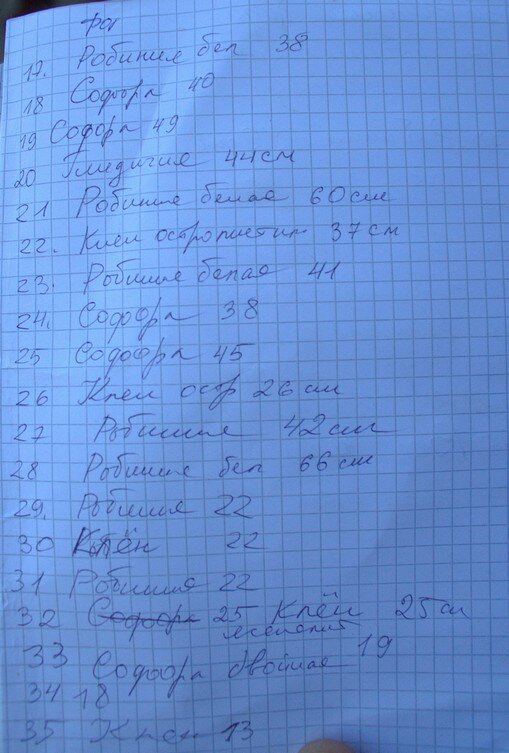 рог
17. Робиния бел 38
18 Софора 40
19 Софора 49
20 Гледичия 44 см
21 Робиния белая 60 см
22. Клен остролистн 37 см
23. Робиния белая 41
24. Софора 38
25 Софора 45
26 Клен остр 26 см
27 Робиния 42 см
28 Робиния бел 66 см
29. Робиния 22
30 Клён 22
31 Робиния 22
32 Софора 25 Клён 25 см
ясенелист
33 Софора двойная 19
34 18
35 Клен 13